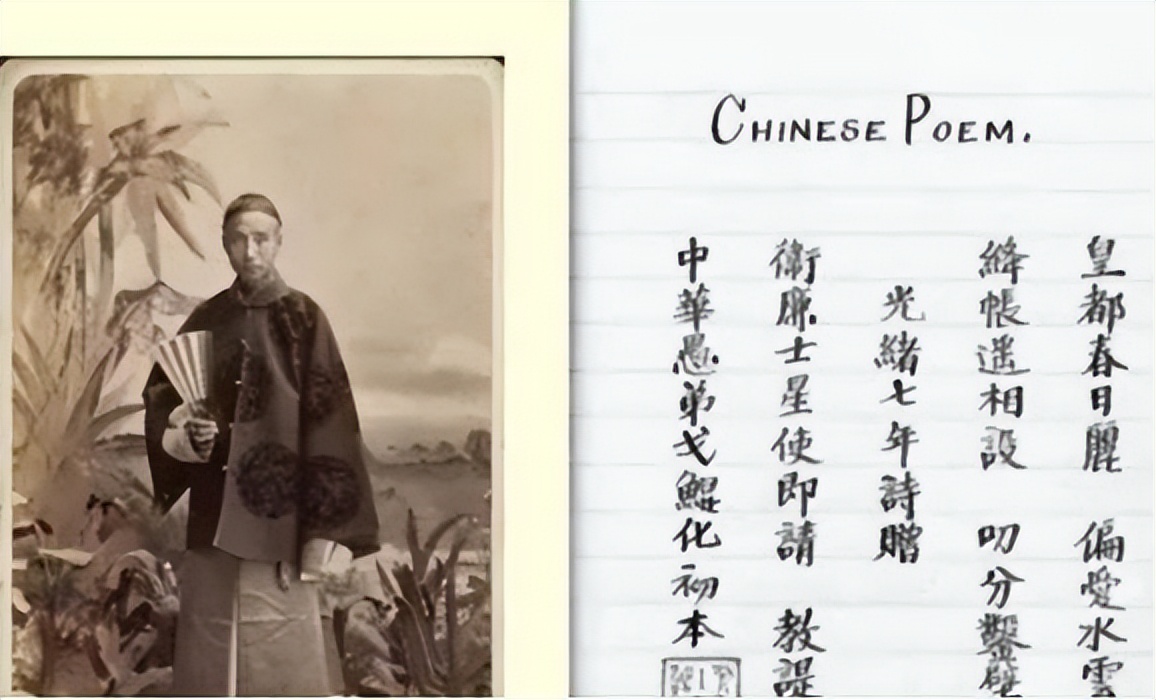 CHINESE POEM.
皇都春日麗 偏愛水雲
絳帳遥相設 叨分鑿壁
光緒七年詩贈
衛廉士星使即請 教諟
中華愚弟戈鯤化初本